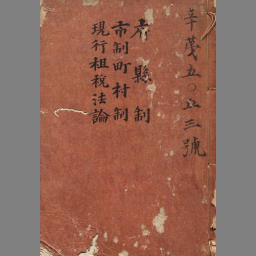 辛茂五〇五三號
府縣制
市制町村制
現行租税法論